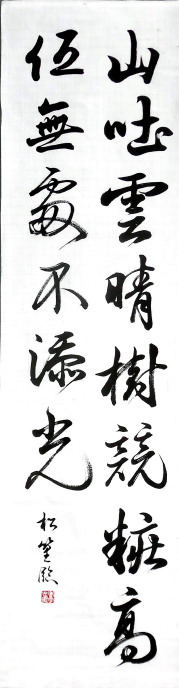 山吐雲晴樹競粧高
低無處不添光
松笙